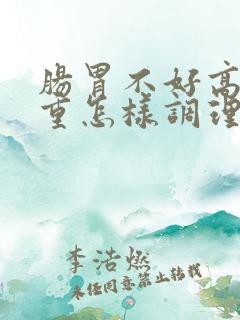 腸胃不好高
重怎樣調理
李浩燃
未經同意禁止轉載